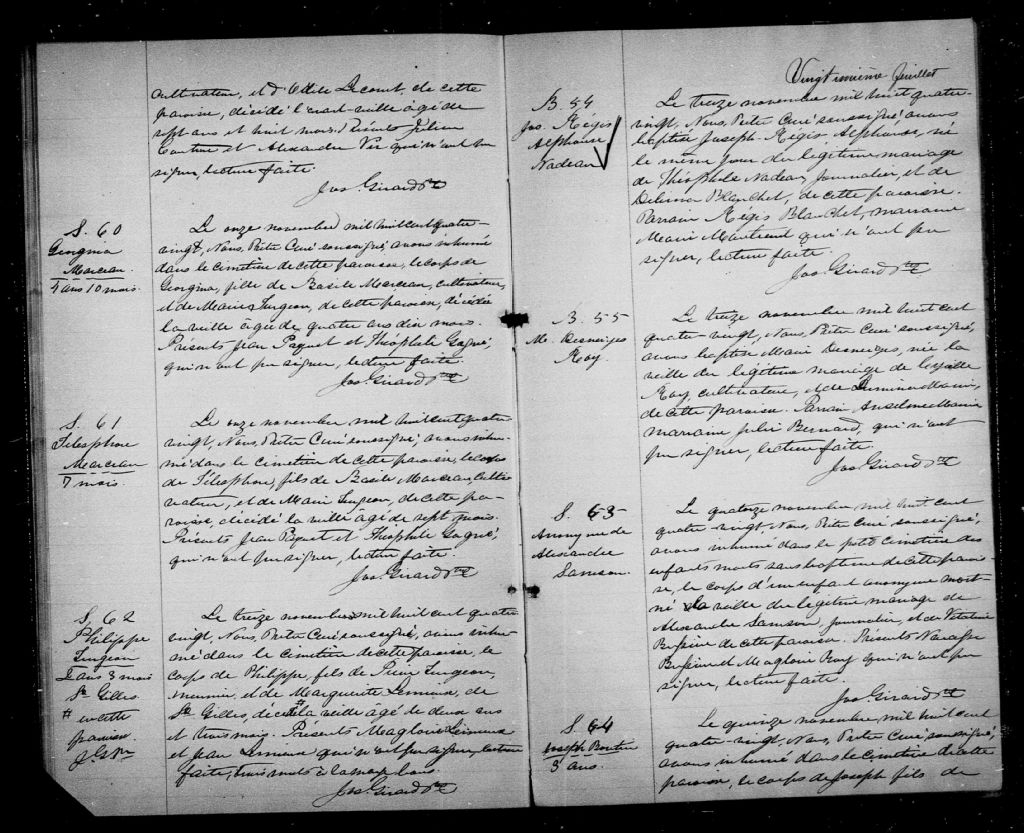 cultivateur, et d'Odile Lecourt, de cette
paroisse, décédé l'avant-veille âgé de
sept ans et huit mois. Présents Julien
et Alexandre qui n'ont pu
signer, lecture faite.
Jos. Girard Ptre
S. 60
Georgina
Marceau
4 ans 10 mois.
Le onze novembre mil huit cent quatre-
vingt, Nous, Prêtre Curé soussigné avons inhumé
dans le cimetière de cette paroisse, le corps de
Georgina, fille de Basile Marceau, cultivateur,
et de Marie Turgeon, de cette paroisse, décédée
la veille âgée de quatre ans dix mois.
Présents Jean Paquet et Théophile Gagné,
qui n'ont pu signer, lecture faite.
Jos. Girard Ptre
S. 61
Télesphore
Marceau
7 mois.
Le onze novembre mil huit cent quatre
vingt, Nous, Prêtre Curé soussigné, avons inhu-
mé dans le cimetière de cette paroisse, le corps
de Télesphore, fils de Basile Marceau, culti-
vateur, et de Marie Turgeon, de cette pa-
roisse, décédé la veille âgé de sept mois.
Présents Jean Paquet et Théophile Gagné,
qui n'ont pu signer, lecture faite.
Jos. Girard Ptre
S. 62
Philippe
Turgeon
2 ans 3 mois
St Gilles
# en cette
paroisse
J. G. Ptre
Le treize novembre mil huit cent quatre
vingt, Nous, Prêtre Curé soussigné, avons inhu-
mé dans le cimetière de cette paroisse, le
corps de Philippe, fils de Pierre Turgeon,
meunier, et de Marguerite Lemieux, de
St Gilles, décédé # la veille âgé de deux ans
et trois mois. Présents Magloire Lemieux
et Jean Lemieux qui n'ont pu signer, lecture
faite, trois mots à la marge bons.
Jos. Girard Ptre
Vingt unième feuillet
B. 54
Jos. Régis
Alphonse
Nadeau
Le treize novembre mil huit cent quatre-
vingt, Nous, Prêtre Curé soussigné avons
baptisé Joseph-Régis Alphonse, né
le même jour du légitime mariage
de Théophile Nadeau, journalier, et de
Delima Blanchet, de cette paroisse.
Parrain Régis Blanchet, marraine
Marie qui n'ont pu
signer, lecture faite.
Jos. Girard Ptre
B. 55
M. Desneiges
Roy
Le treize novembre mil huit cent
quatre-vingt, Nous, Prêtre Curé soussigné,
avons baptisé Marie Desneiges, née la
veille du légitime mariage de
Roy cultivateur, et de
de cette paroisse. Parrain Anselme
marraine Julie Bernard, qui n'ont
pu signer, lecture faite.
Jos. Girard Ptre
S. 63
Anonyme de
Alexandre
Samson.
Le quatorze novembre mil huit cent
quatre-vingt, Nous, Prêtre Curé soussigné,
avons inhumé dans le petit cimetière des
enfants morts sans baptême de cette parois-
se, le corps d'un enfant anonyme mort-
né la veille du légitime mariage de
Alexandre Samson, journalier, et de
de cette paroisse. Présents
et Magloire Roy qui n'ont pu
signer, lecture faite.
Jos. Girard Ptre
S. 64
Joseph
3 ans.
Le quinze novembre mil huit cent
quatre-vingt, Nous, Prêtre Curé soussigné,
avons inhumé dans le cimetière de cette
paroisse, le corps de Joseph fils de